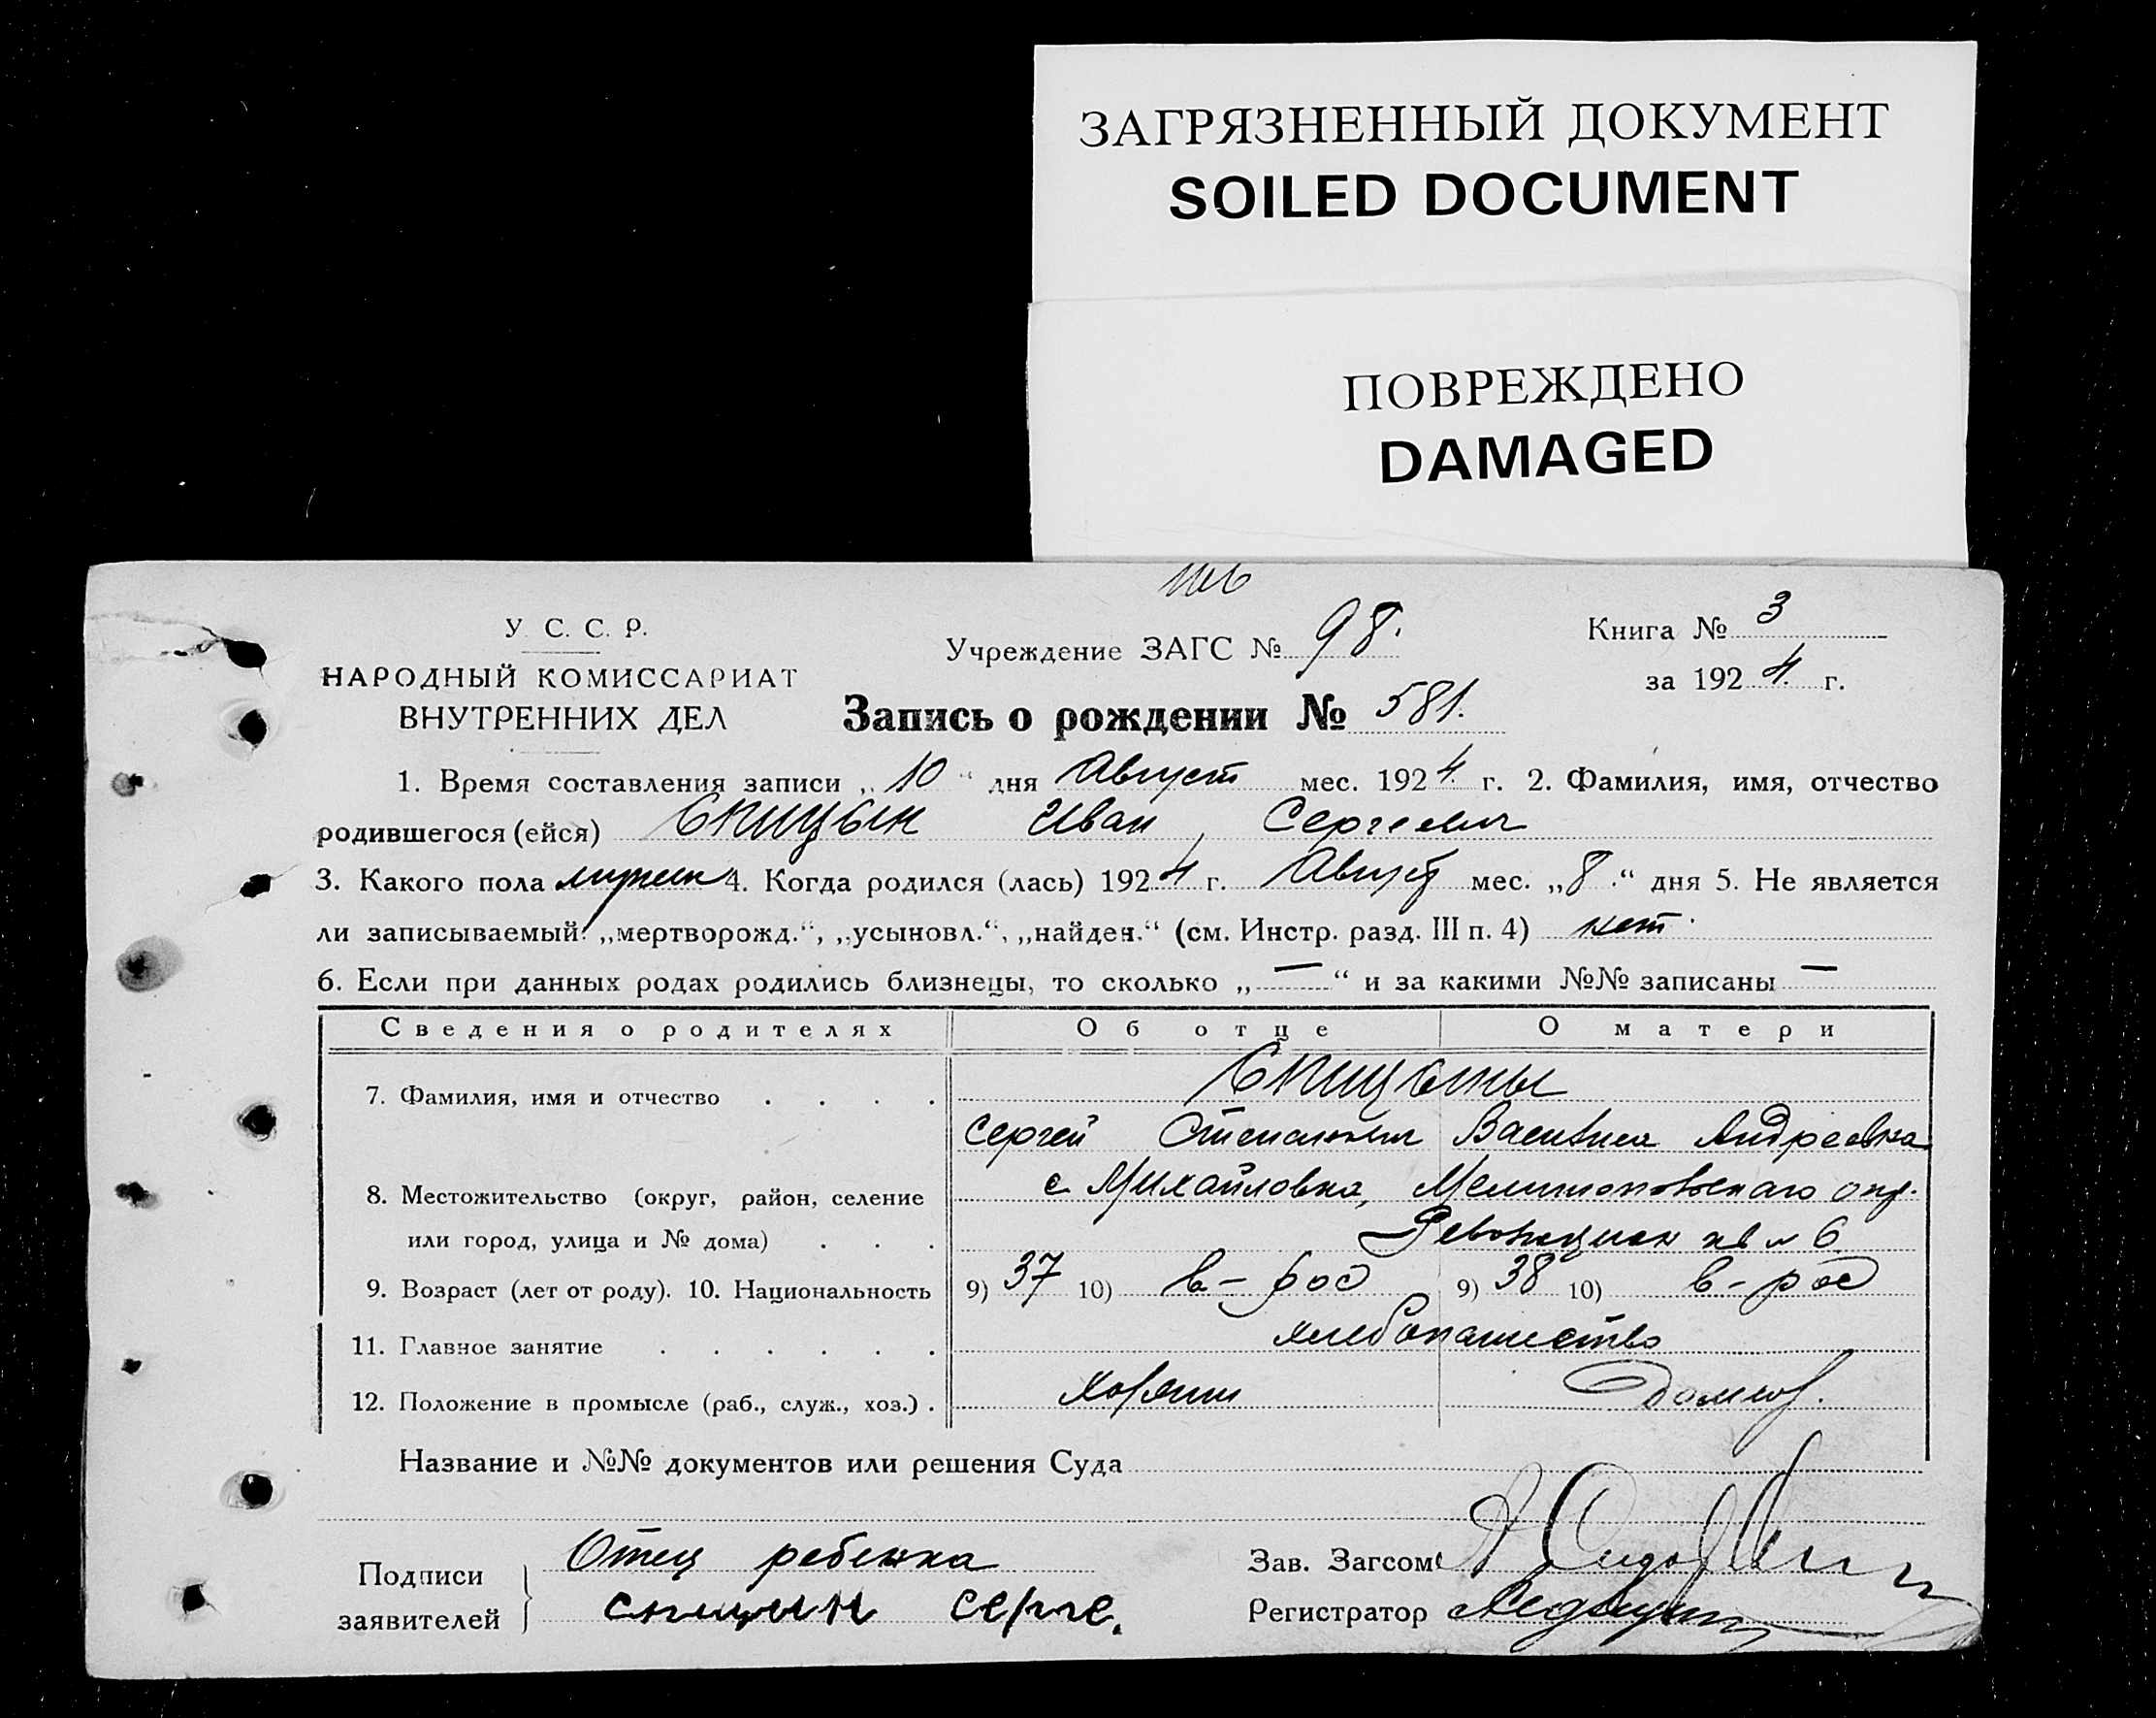 ЗАГРЯЗНЕННЫЙ ДОКУМЕНТ
SOILED DOCUMENT
ПОВРЕЖДЕНО
DAMAGED
У. С. С. Р.
НАРОДНЫЙ КОМИССАРИАТ
ВНУТРЕННИХ ДЕЛ
Учреждение ЗАГС № 98.
Книга № 3
за 1924 г.
Запись о рождении № 581.
1. Время составления записи „10“ дня Август мес. 1924 г. 2. Фамилия, имя, отчество
родившегося (ейся) Спицын Иван Сергеевич
3. Какого пола мужск 4. Когда родился (лась) 1924 г. Август мес. „8.“ дня 5. Не является
ли записываемый: „мертворожд.“, „усыновл.“, „найден.“ (см. Инстр. разд. III п. 4) нет.
6. Если при данных родах родились близнецы, то сколько „—“ и за какими №№ записаны —
Сведения о родителях Об отце О матери
Спицыны
7. Фамилия, имя и отчество . . . .
Сергей Степанович Василиса Андреевна
8. Местожительство (округ, район, селение с. Михайловка, Мелитопольскаго окр.
или город, улица и № дома) . . . Революцион кв № 6
9. Возраст (лет от роду). 10. Национальность 9) 37 10) в-рос 9) 38 10) в-рос
11. Главное занятие . . . . . . хлебопашество
12. Положение в промысле (раб., служ., хоз.) . хозяин домхоз.
Название и №№ документов или решения Суда
Подписи
заявителей
Отец ребенка
спицын серге.
Зав. Загсом
Регистратор